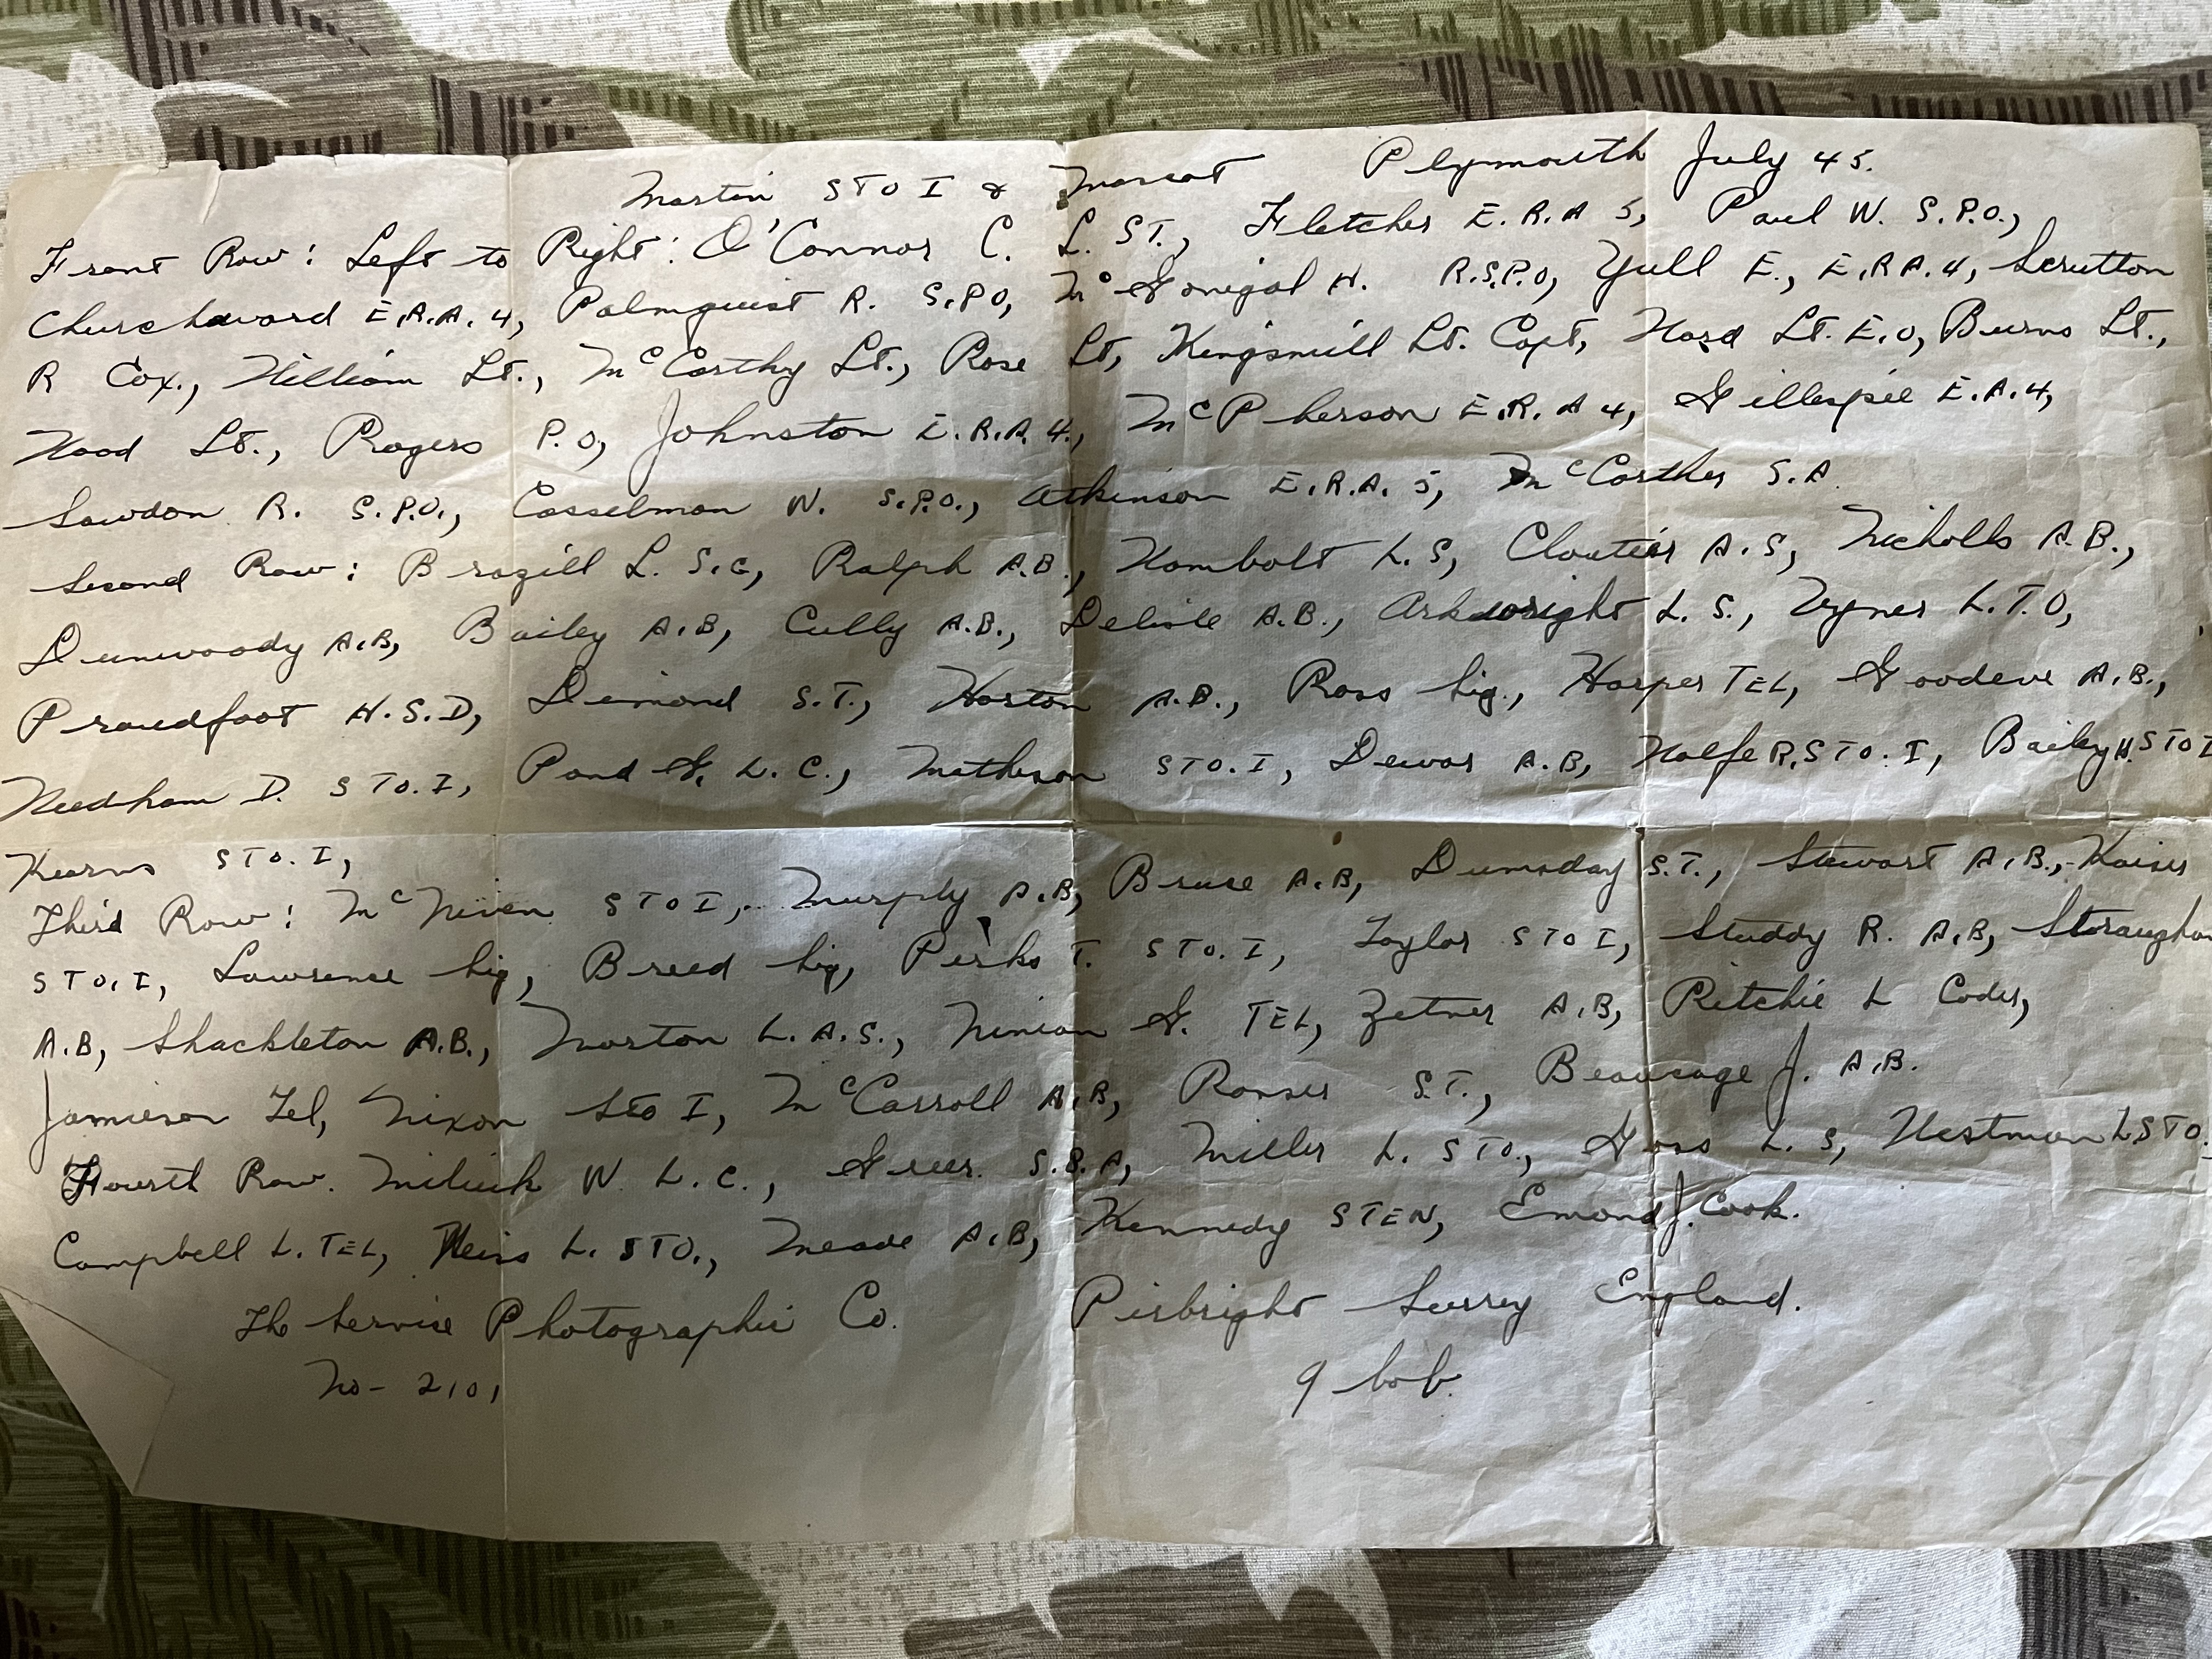 Martin STO I & Mascot Plymouth July 45.
Front Row: Left to Right: O'Connor C. L. ST., Fletcher E.R.A 5, Paul W. S.P.O.,
Churchward E.R.A. 4, Palmquist R. S.P.O, McGonigal H. R.S.P.O, Yull E., E.R.A. 4, Scrutton
R Cox., William Lt., McCarthy Lt., Rose Lt, Kingsmill Lt. Capt, Ward Lt. E.O, Burns Lt.,
Wood Lt., Rogers P.O, Johnston E.R.A 4., McPherson E.R.A 4, Gillespie E.A.4,
Sawdon R. S.P.O., Casselman W. S.P.O., Atkinson E.R.A. 5, McCarther S.A.
Second Row: Brazill L. S.G, Ralph A.B., Hambolt L.S, Cloutier A.S, Nicholls A.B.,
Dunwoody A.B, Bailey A.B, Cully A.B., Delisle A.B., Arkwright L.S., Vyner L.T.O,
Proudfoot H.S.D, Demond S.T., Horton A.B., Ross Sig., Harper TEL, Goodeve A.B.,
Needham D. STO. I, Pond G. L.C., Matheson STO. I, Dewar A.B, Wolfe R. STO. I, Bailey H. STO I
Kearns STO. I,
Third Row: McNiven STO I, Murphy A.B, Bruse A.B, Dumsday S.T., Stewart A.B., Kaiser
STO. I, Lawrence Sig, Breed Sig, Perks T. STO. I, Taylor STO I, Studdy R. A.B,
A.B, Shackleton A.B., Morton L.A.S., Ninian G. TEL, Zetner A.B, Ritchie L Coder,
Jamieson Tel, Nixon Sto I, McCarroll A.B, Ranser S.T., Beaucage J. A.B.
Fourth Row. W. L.C., Greer. S.B.A, Miller L. STO., Goss L.S, Westman L STO.
Campbell L. TEL, Weiss L. STO., Meade A.B, Kennedy STEN, Emond J. Cook.
The Service Photographic Co. Pirbright Surrey England.
No - 2101 9 bob.